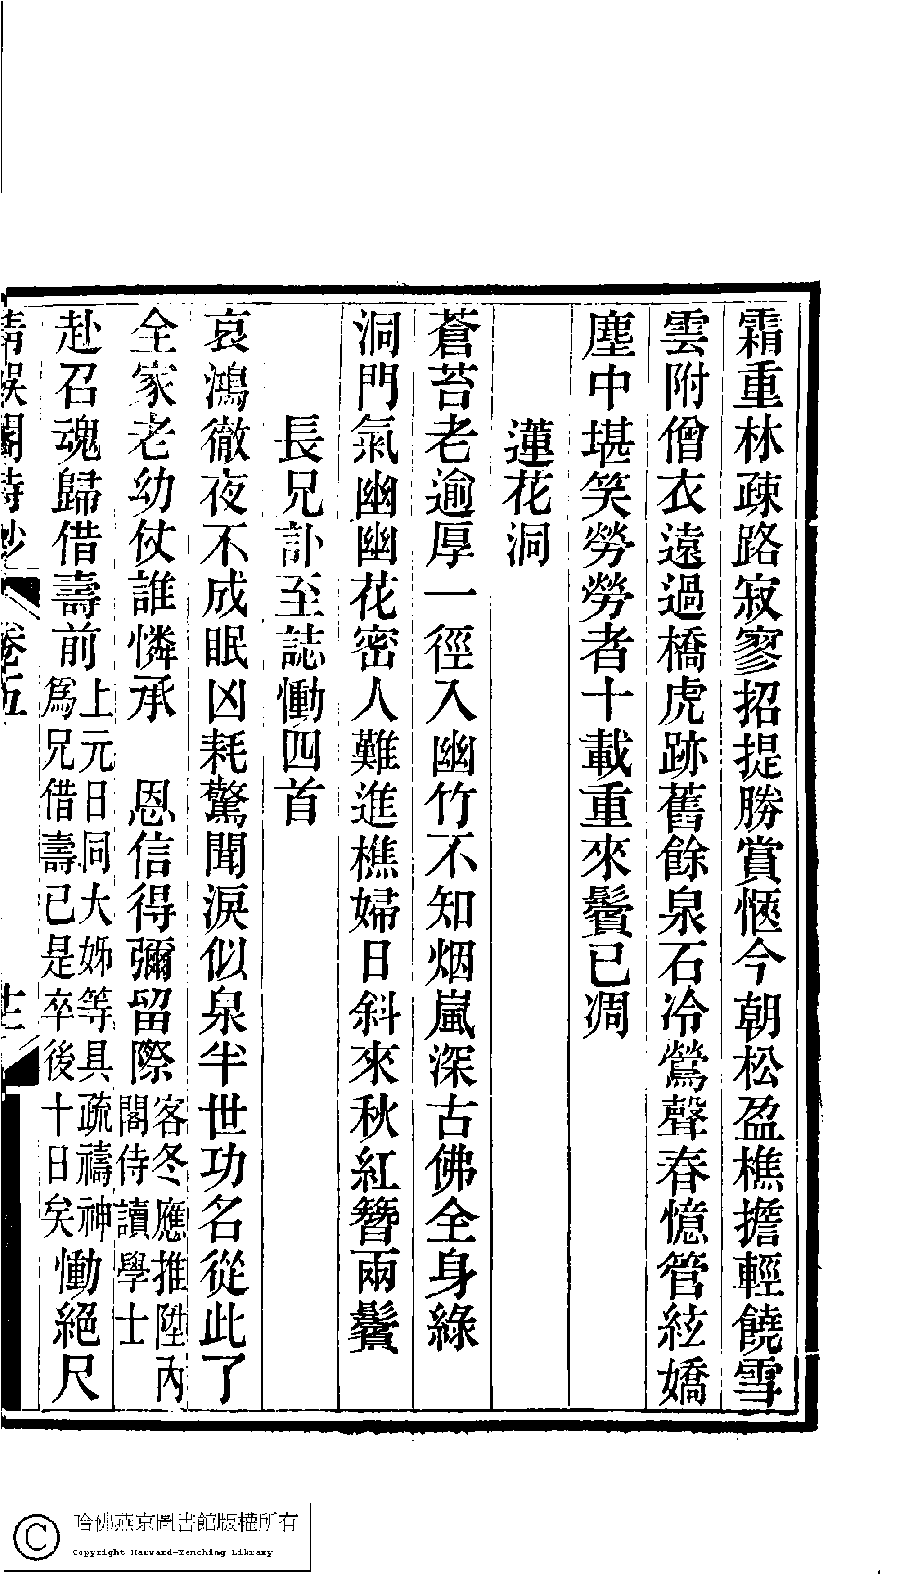 霜重林疎路寂寥招提勝賞愜今朝松盈樵擔輕饒雪
雲附僧衣遠過橋虎跡舊餘泉石冷鶯聲春憶管絃嬌
塵中堪笑勞勞者十載重來鬢已凋
蓮花洞
蒼苔老逾厚一徑入幽竹不知烟嵐深古佛全身綠
洞門氣幽幽花密人難進樵婦日斜來秋紅簪兩鬢
長兄訃至誌慟四首
哀鴻徹夜不成眠凶耗驚聞淚似泉半世功名從此了
全家老幼仗誰憐承 恩信得彌留際客冬應推陞內閣侍讀學士
赴召魂歸借壽前上元日同大姊等具疏禱神爲兄借壽已是卒後十日矣慟絕尺
清娛閣詩鈔 卷五
哈佛燕京圖書館版權所有
Copyright Harvard-Yenching Library